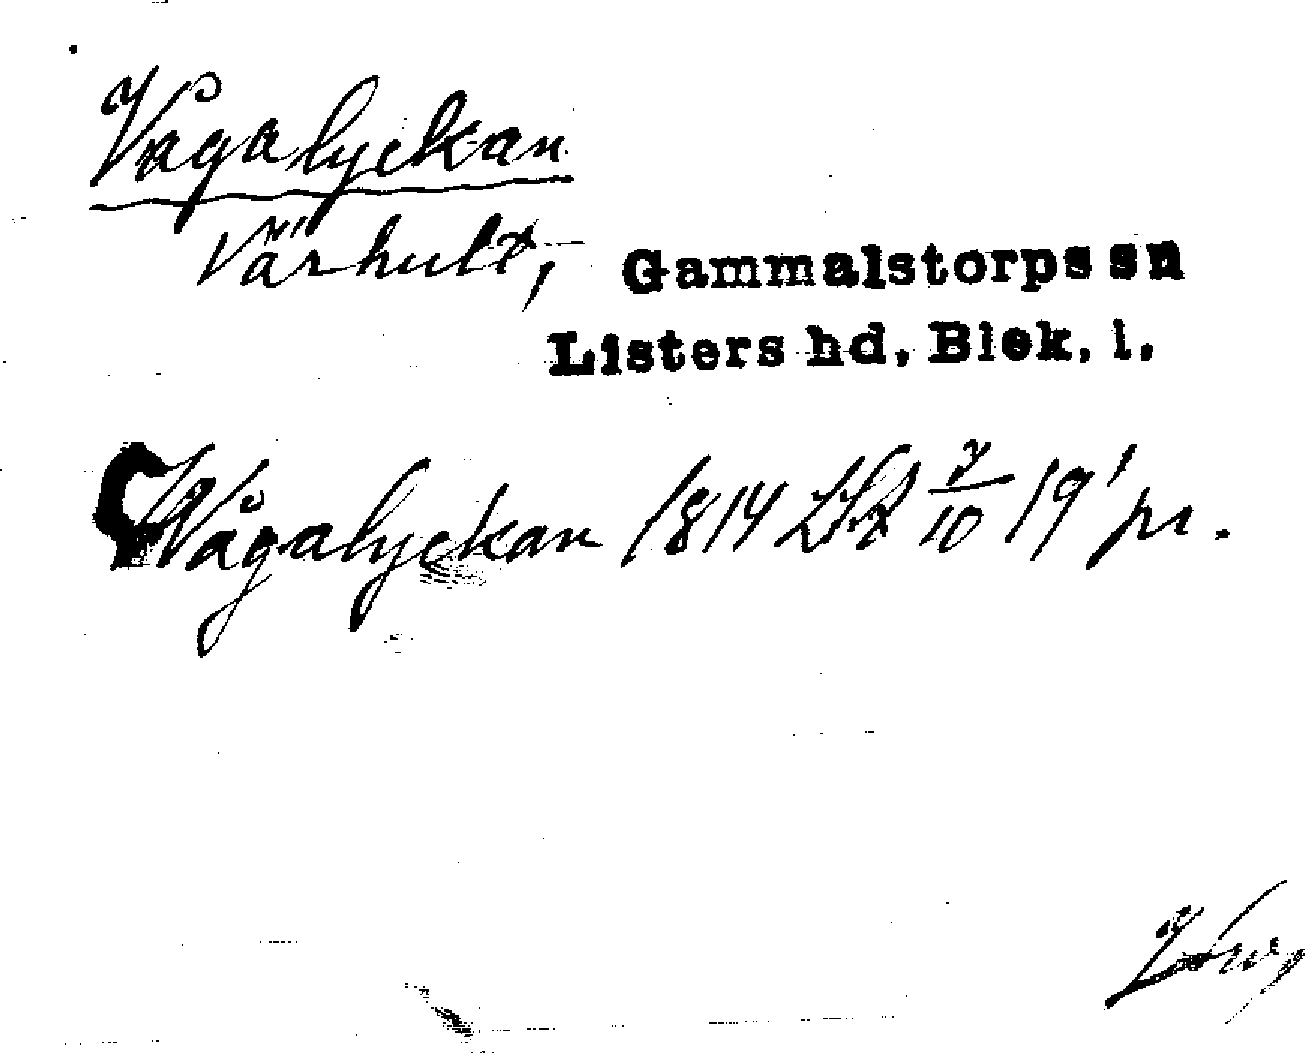 Vågalyckan
Värhult, Gammalstorps sn
Listers hd, Blek. l.
Wågalyckan 1814 LSA 7/10 19' pr.